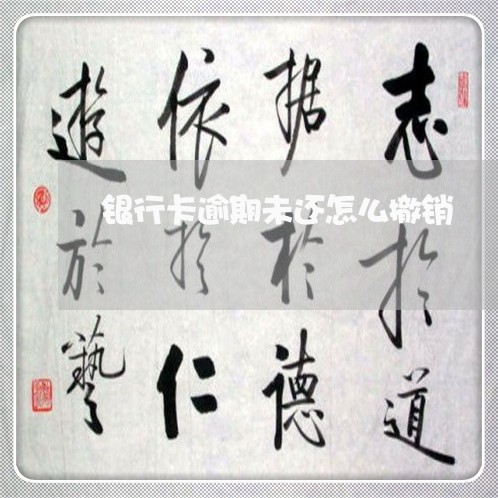 志於道
据於德
依於仁
遊於藝
银行卡逾期未还怎么撤销